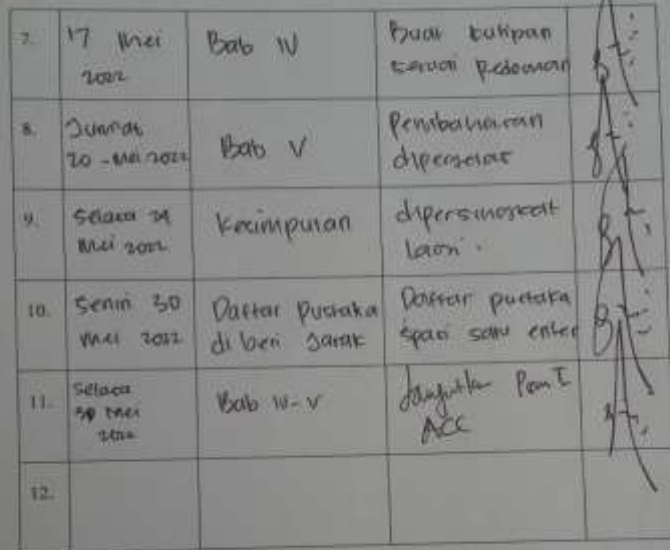 7.
17 Mei
2022
Bab IV
Buat kutipan
sesuai Pedoman
8.
Jumat
20 - Mei 2022
Bab V
Pembahasan
diperjelas
9.
Selasa 24
Mei 2022
Kesimpulan
dipersingkat
lagi.
10.
Senin 30
Mei 2022
Daftar Pustaka
di beri Jarak
Daftar pustaka
spasi satu enter
11.
Selasa
Mei
2022
Bab IV-V
ACC
12.